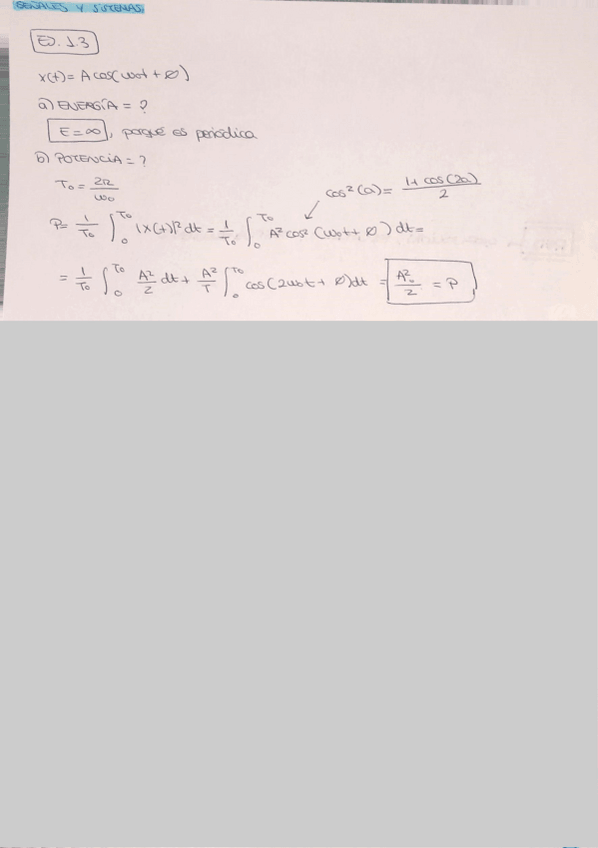 SEÑALES Y SISTEMAS
EJ. 1.3
x(t) = A cos(ω₀t + ∅)
a) ENERGÍA = ?
E = ∞, porque es periodica
b) POTENCIA = ?
T₀ = 2π/ω₀
cos²(a) = (1 + cos(2a))/2
P = 1/T₀ ∫₀^T₀ |x(t)|² dt = 1/T₀ ∫₀^T₀ A² cos² (ω₀t + ∅) dt =
= 1/T₀ ∫₀^T₀ A²/2 dt + A²/T ∫₀^T₀ cos(2ω₀t + ∅)dt = A₀²/2 = P